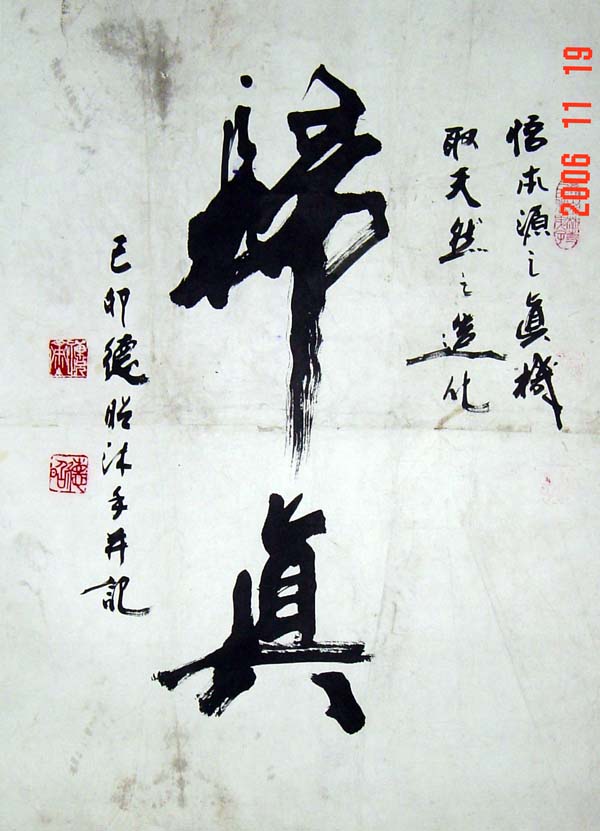 悟本源之真機
取天然之造化
歸真
己卯德昭沐手并記
德昭
2006 11 19